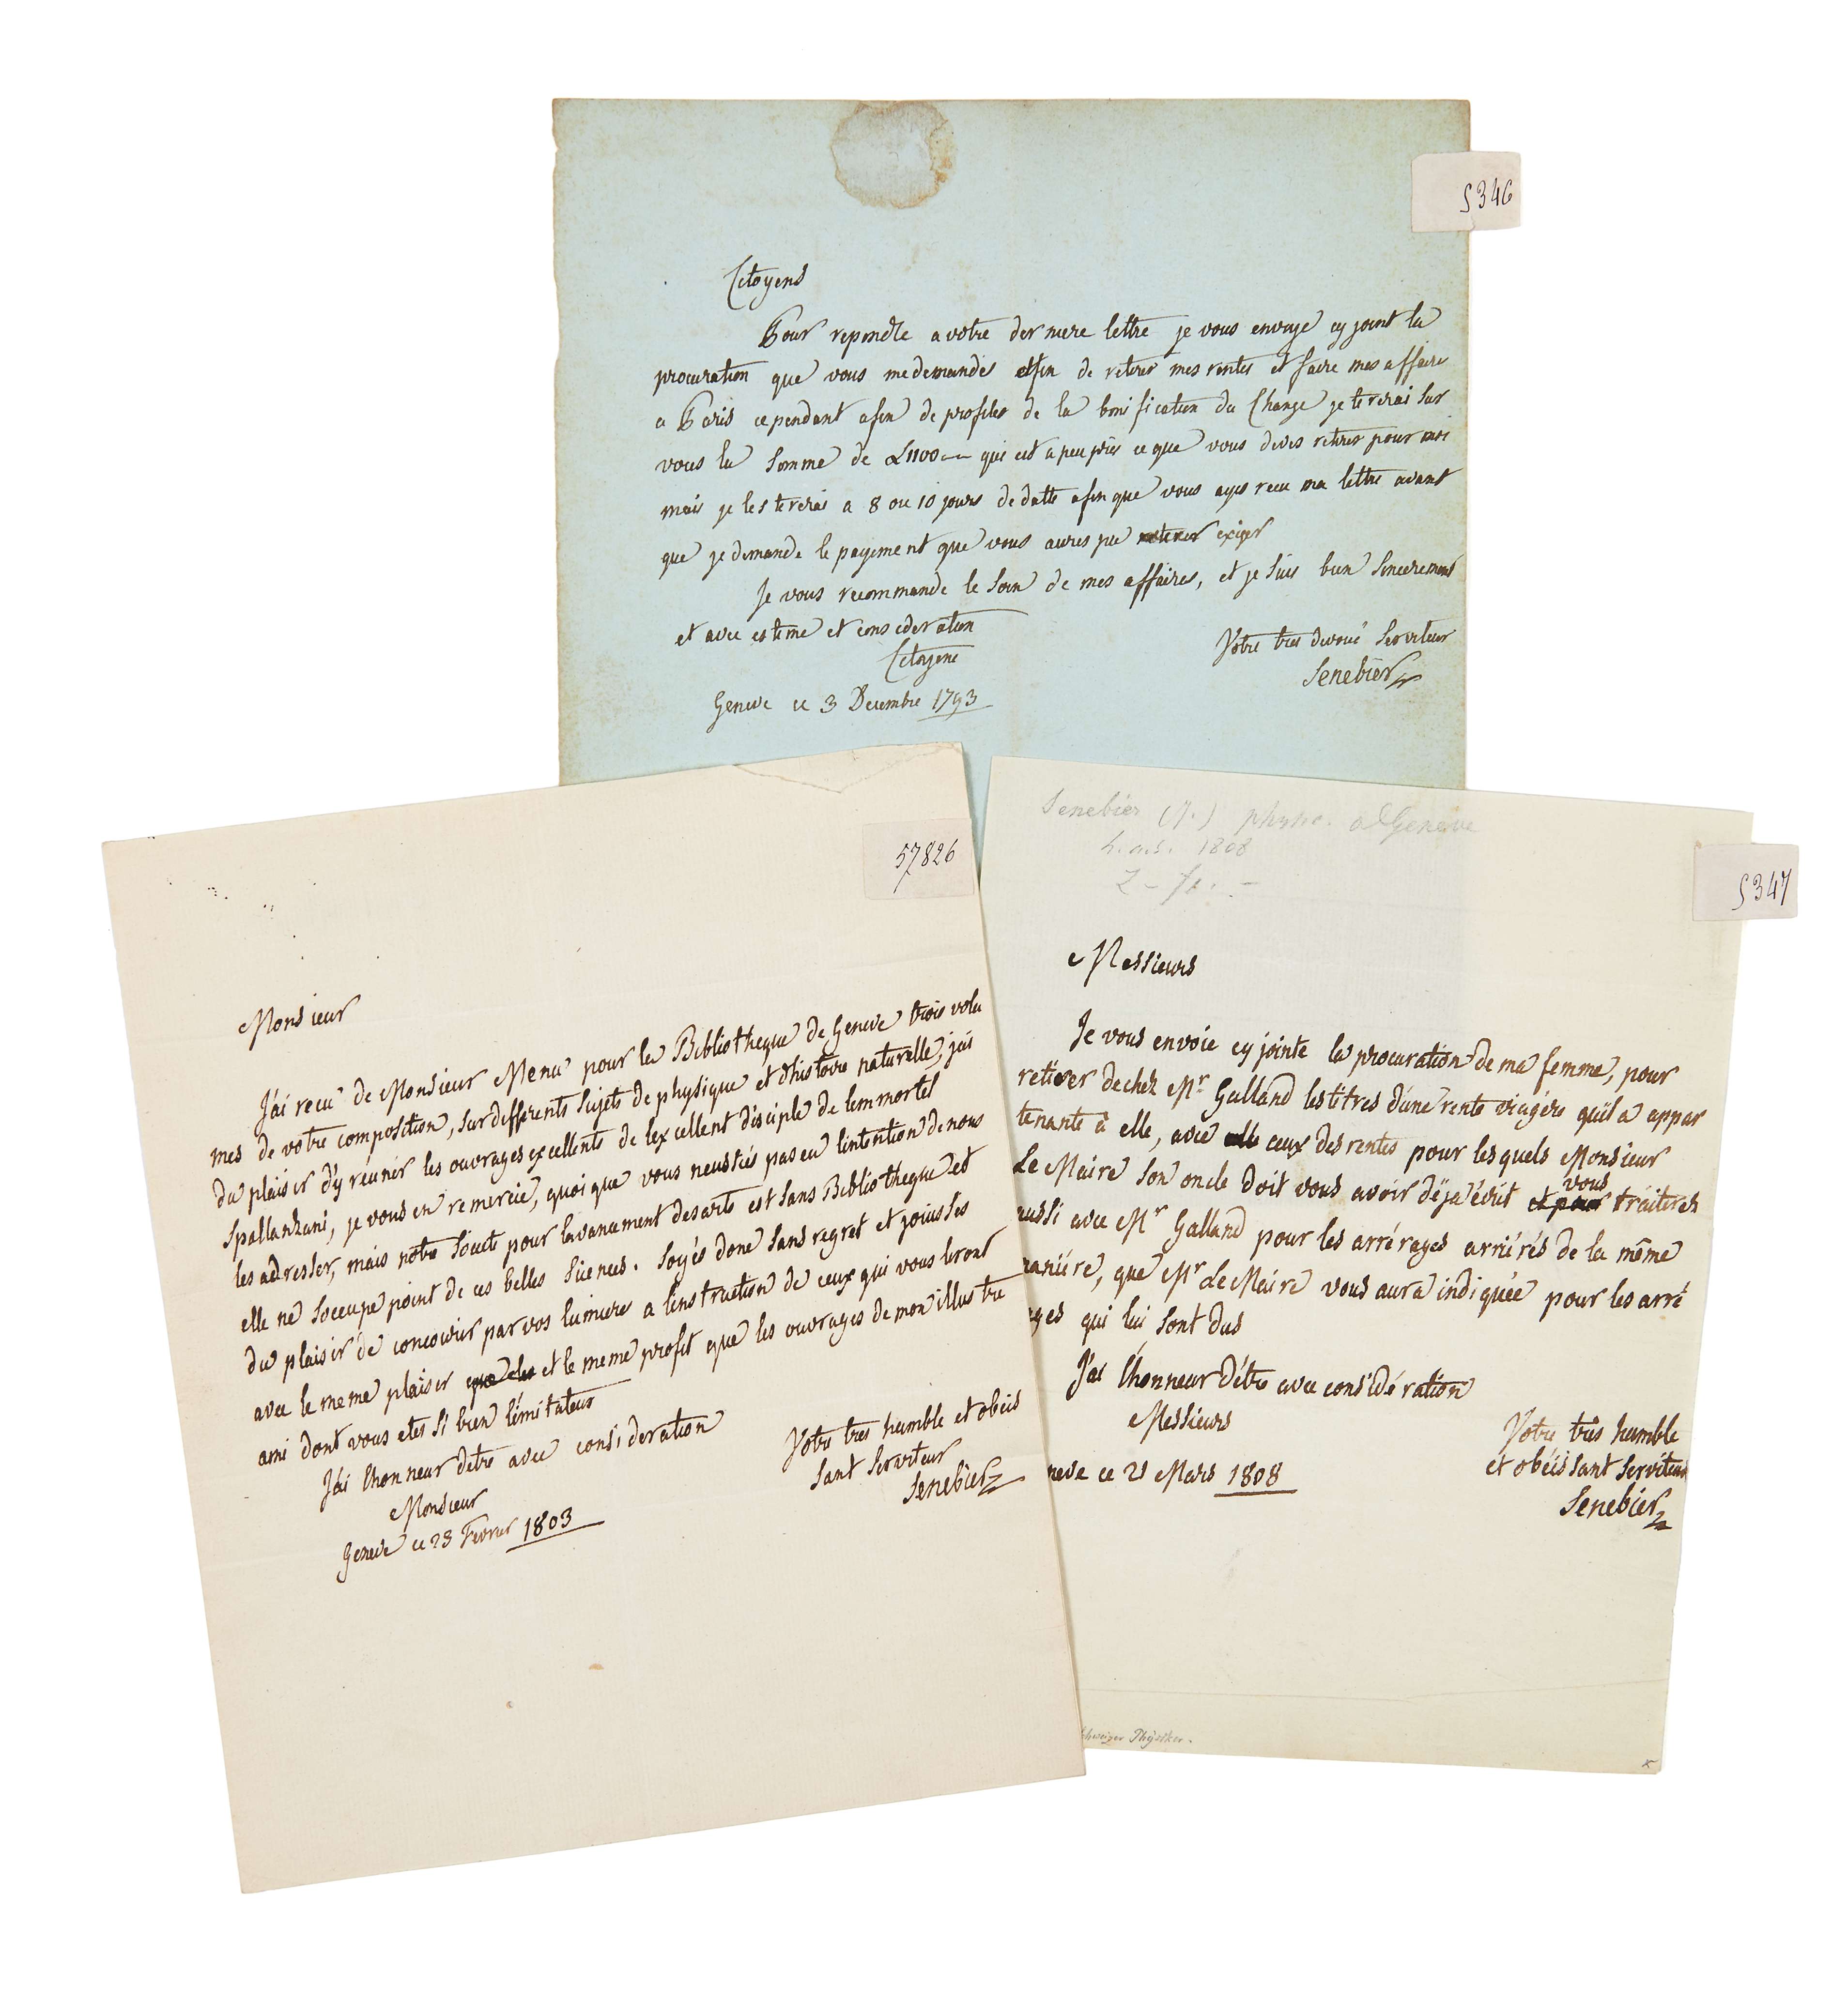 S346
Citoyens
Pour repondre a votre derniere lettre je vous envoye cy joint la
procuration que vous me demandes affin de retirer mes rentes et faire mes affaire
a Paris cependant afin de profiter de la bonification du Change je tirerai sur
vous la somme de £1100 — qui est a peu près ce que vous deves retirer pour moi
mais je les tirerai a 8 ou 10 jours de datte afin que vous ayes recu ma lettre avant
que je demande le payement que vous aures pu retirer exiger
Je vous recommande le soin de mes affaires, et je suis bien sincerement
et avec estime et consideration
Citoyens
Votre tres devoué serviteur
Senebier
Geneve ce 3 Decembre 1793
57826
Monsieur
J'ai recu de Monsieur Menu pour la Bibliotheque de Geneve trois volu
mes de votre composition, sur differents sujets de physique et d'histoire naturelle, j'ais
du plaisir d'y réunir les ouvrages excellents de l'excellent disciple de l'immortel
Spallanzani, je vous en remercie, quoique vous neussiés pas eu l'intention de nous
les adresser, mais notre Societe pour l'avancement des arts est sans Bibliotheque et
elle ne s'occupe point de ces belles Sciences. Soyés donc sans regret et jouissés
du plaisir de concourir par vos lumieres a l'instruction de ceux qui vous liront
avec le meme plaisir que les et le meme profit que les ouvrages de mon illustre
ami dont vous etes si bien l'émitateur
J'ai lhonneur detre avec consideration
Monsieur
Votre tres humble et obeis
sant Serviteur
Senebier
Geneve ce 23 Fevrier 1803
Senebier (J.) physic. a Geneve
L.a.s. 1808
2 - fr. -
S347
Messieurs
Je vous envoie cy jointe la procuration de ma femme, pour
retirer de chez Mr Galland les titres d'une rente viagère qu'il a appar
tenante à elle, avec elle ceux des rentes pour lesquels Monsieur
Le Maire son oncle doit vous avoir déja écrit et pour vous traiterez
aussi avec Mr Galland pour les arrérages arriérés de la même
maniére, que Mr Le Maire vous aura indiquée pour les arré
ages qui lui sont dus
J'ai l'honneur d'être avec considération
Messieurs
Votre très humble
et obéissant serviteur
Senebier
neve ce 21 Mars 1808
chweizer Physiker.